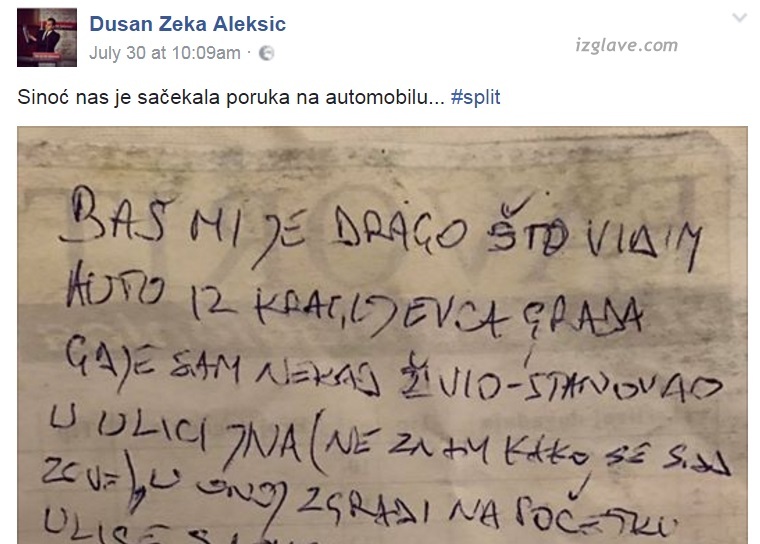 Dusan Zeka Aleksic
July 30 at 10:09am ·
izglave.com
Sinoć nas je sačekala poruka na automobilu... #split
BAŠ MI JE DRAGO ŠTO VIDIM
AUTO IZ KRALJEVCA GRADA
GDJE SAM NEKAD ŽIVIO-STANOVAO
U ULICI JNA (NE ZNAM KAKO SE SAD
ZOVE), U ONOJ ZGRADI NA POČETKU
ULICE